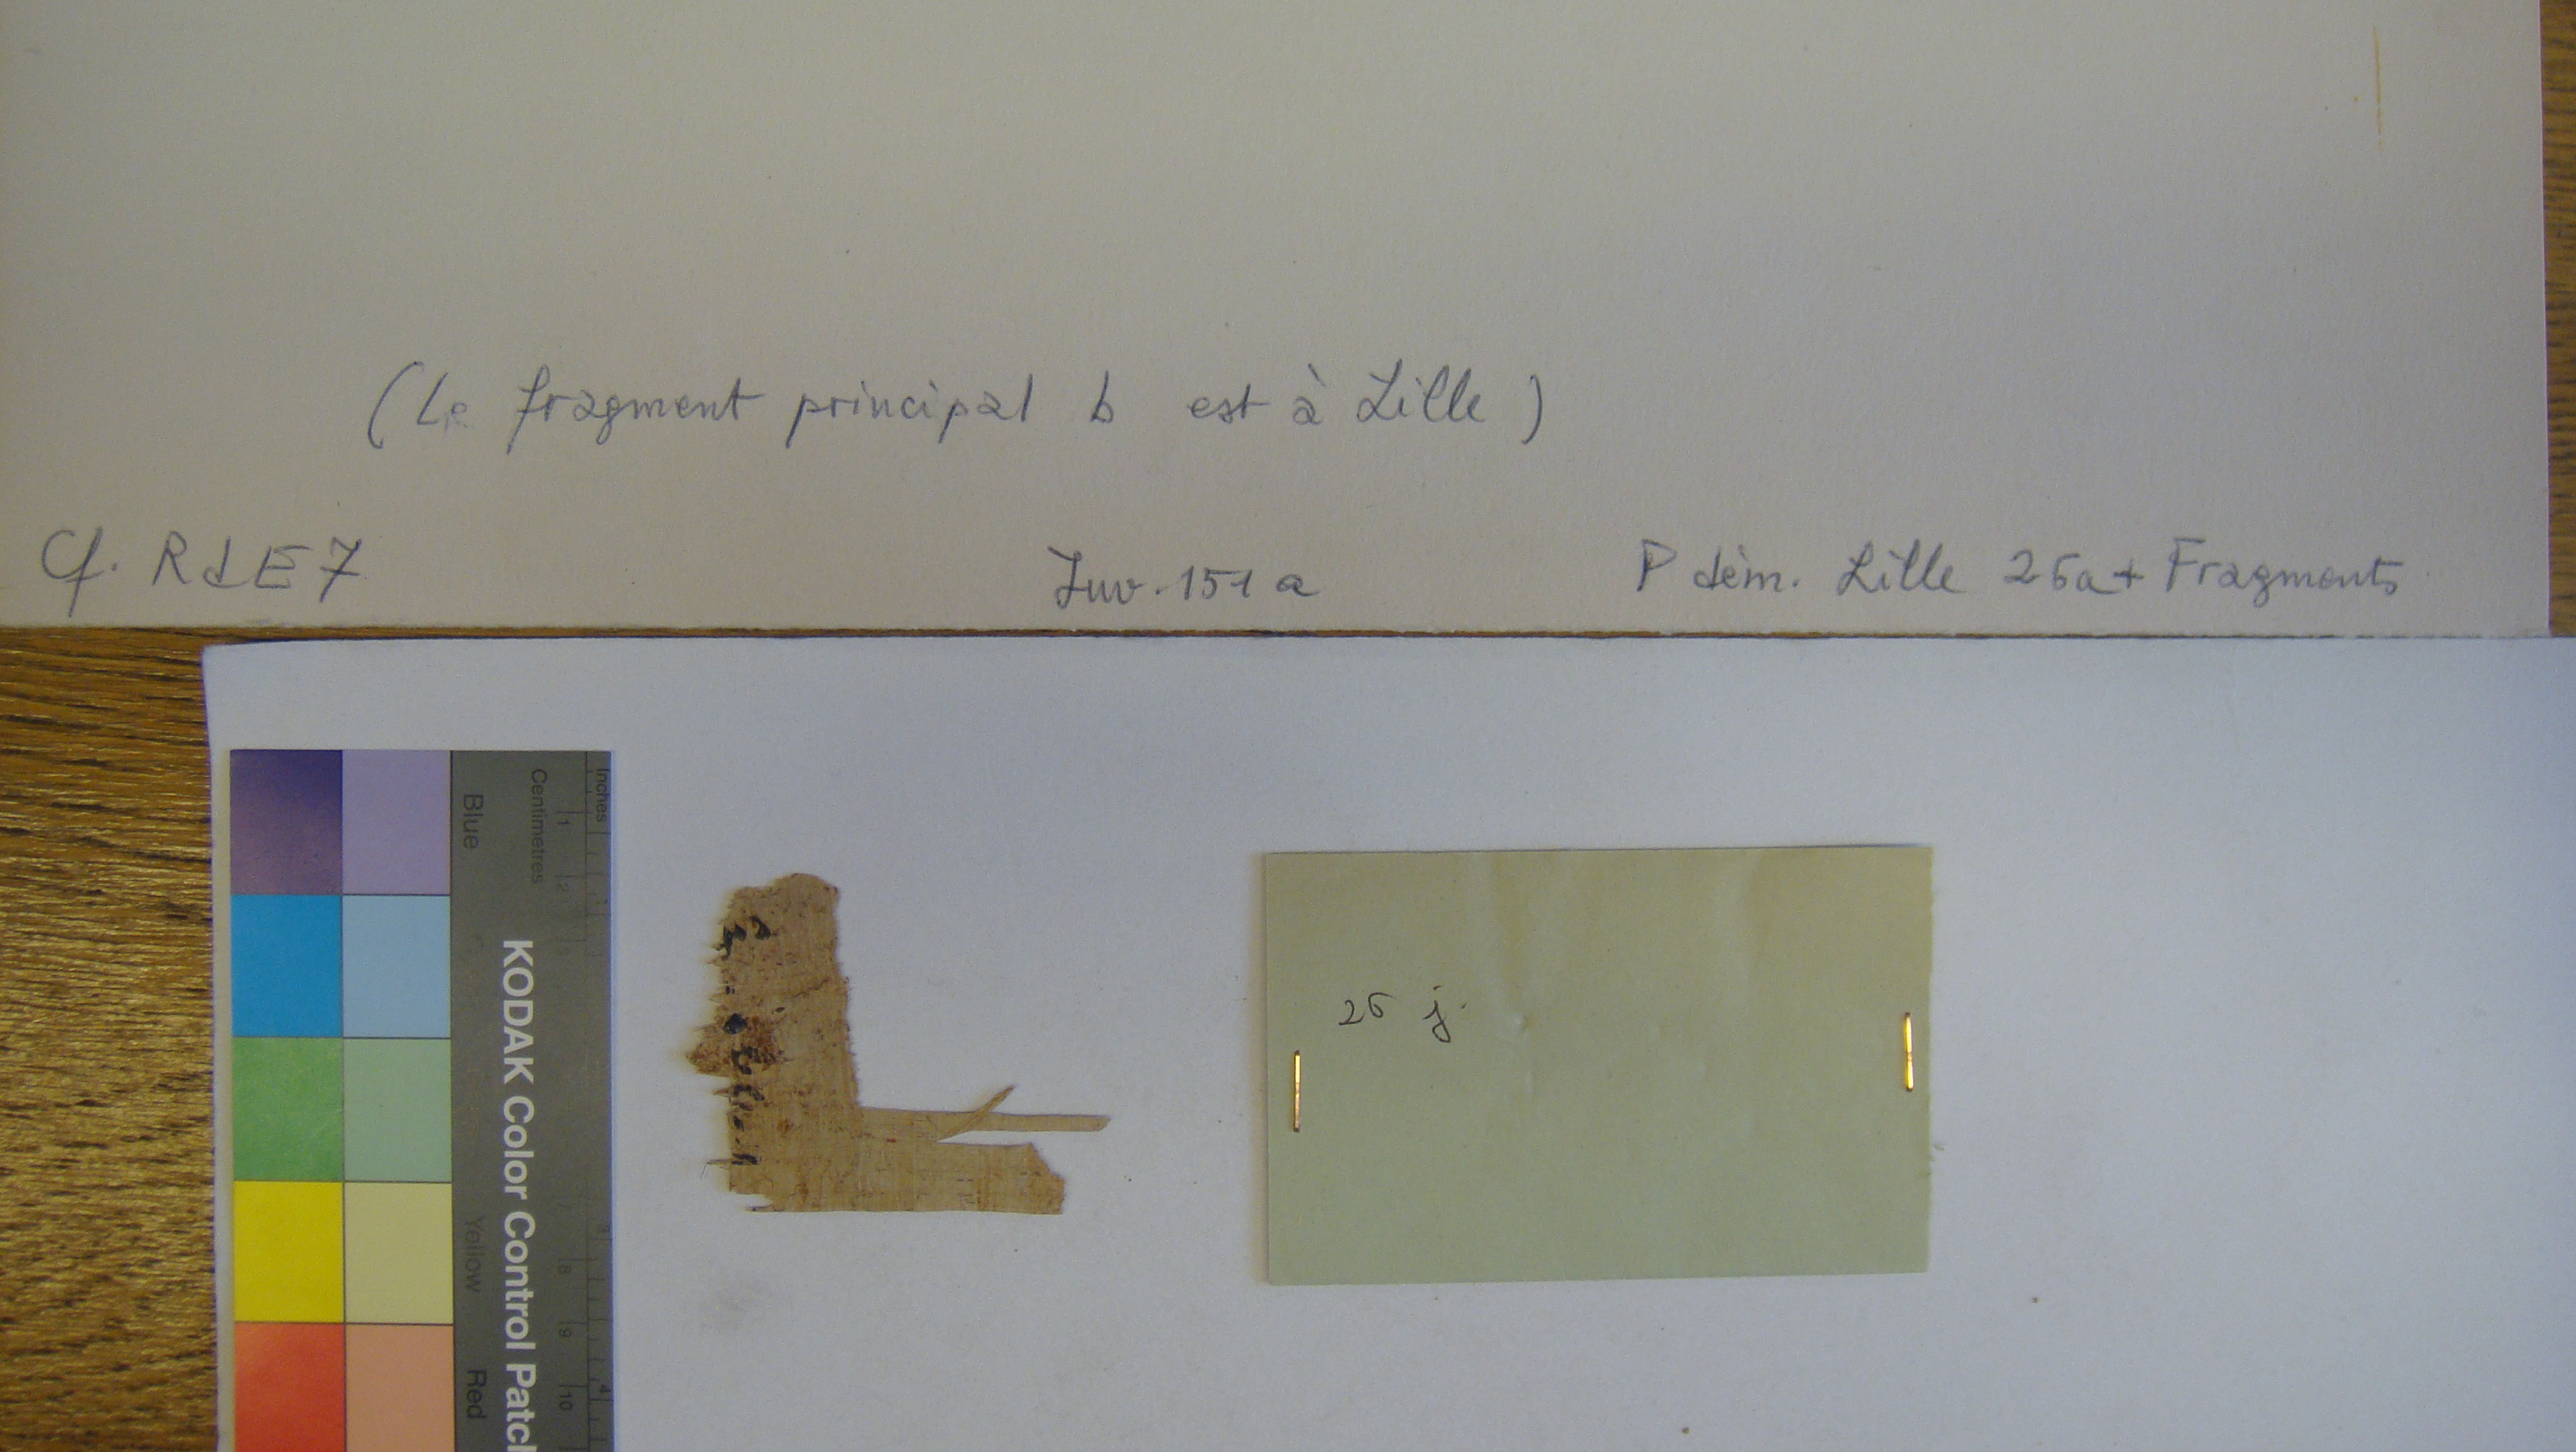 (Le fragment principal b est à Lille)
Cf. RdE7 Inv. 151 a P dém. Lille 26a + Fragments
26 j.
Inches
Centimetres
1 2 3 4
1 2 8 9 10
KODAK Color Control Patch
Blue Yellow Red